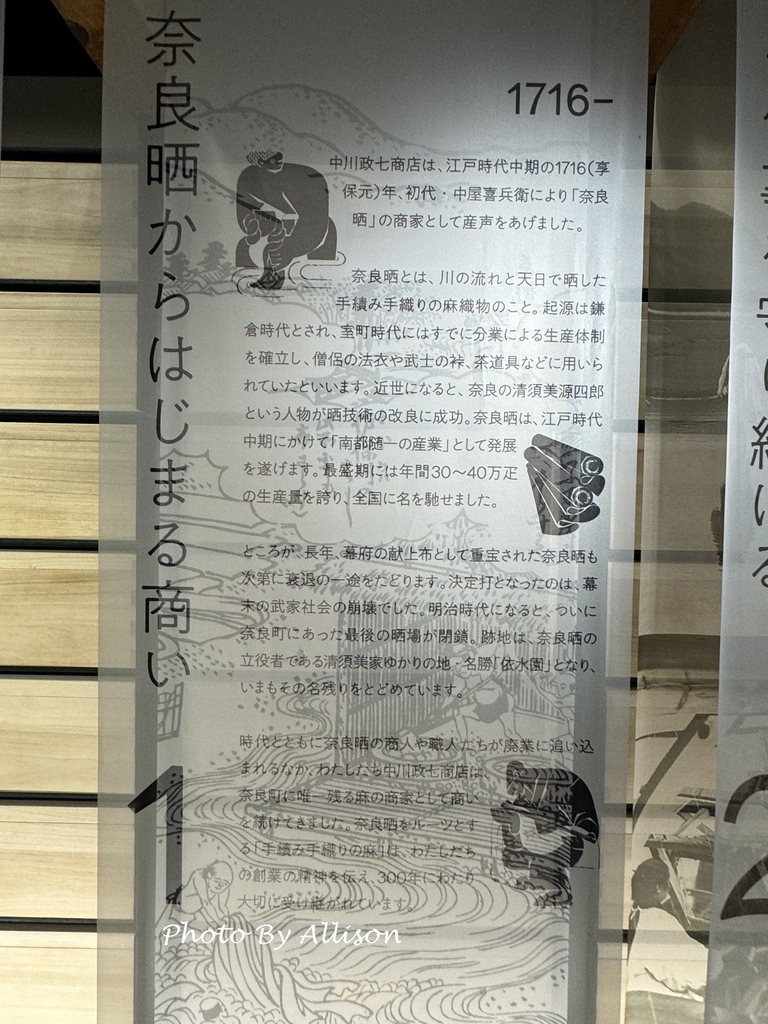 奈良晒からはじまる商い
1
1716–
中川政七商店は、江戸時代中期の1716(享
保元)年、初代・中屋喜兵衛により「奈良
晒」の商家として産声をあげました。
奈良晒とは、川の流れと天日で晒した
手績み手織りの麻織物のこと。起源は鎌
倉時代とされ、室町時代にはすでに分業による生産体制
を確立し、僧侶の法衣や武士の裃、茶道具などに用いら
れていたといいます。近世になると、奈良の清須美源四郎
という人物が晒技術の改良に成功。奈良晒は、江戸時代
中期にかけて「南都随一の産業」として発展
を遂げます。最盛期には年間30〜40万疋
の生産量を誇り、全国に名を馳せました。
ところが、長年、幕府の献上布として重宝された奈良晒も
次第に衰退の一途をたどります。決定打となったのは、幕
末の武家社会の崩壊でした。明治時代になると、ついに
奈良町にあった最後の晒場が閉鎖。跡地は、奈良晒の
立役者である清須美家ゆかりの地・名勝「依水園」となり、
いまもその名残りをとどめています。
時代とともに奈良晒の商人や職人たちが廃業に追い込
まれるなか、わたしたち中川政七商店は、
奈良町に唯一残る麻の商家として商い
を続けてきました。奈良晒をルーツとす
る「手績み手織りの麻」は、わたしたち
の創業の精神を伝え、300年にわたり
大切に受け継がれています。
Photo By Allison
2